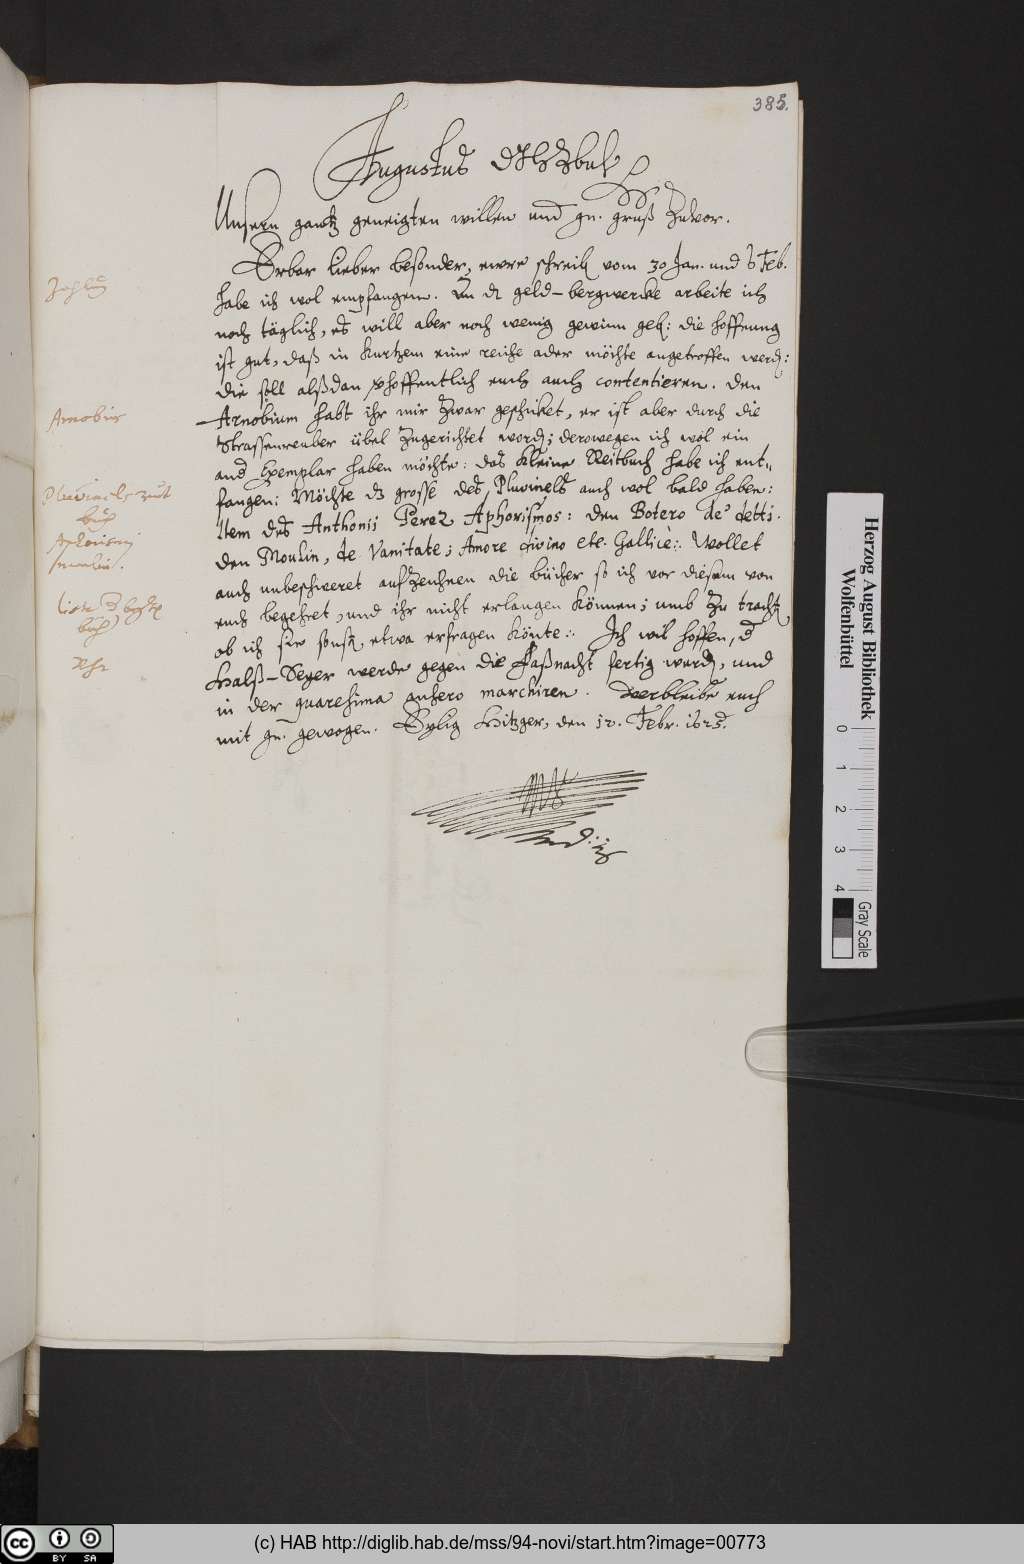 385.
Augustus DJHZBuL
Unsern gantz geneigten willen und gn. gruß zuvor.
Erbar lieber besonder, ewre schreib vom 30 Jan. und 6 Feb.
habe ich wol empfangen. In dz geld-bergwercke arbeite ich
noch täglich, es will aber noch wenig gewinn geb: die hoffnung
ist gut, daß in kurtzem eine reiche ader möchte angetroffen werd:
die soll alßdan verhoffentlich euch auch contentieren. Den
Arnobium habt ihr mir zwar geschicket, er ist aber durch die
Strassenreuber übel zugerichtet word; derowegen ich wol ein
and Exemplar haben möchte: das kleine Reitbuch habe ich ent=
fangen: Möchte dz grosse des Pluvinels auch wol bald haben:
Item des Anthonij Perez Aphorismos: den Botero de detti.
den Moulin, de Vanitate; Amore divino etc. Gallicè:. Wollet
auch unbeschweret aufzeichnen die bücher so ich vor diesem von
euch begehret, und ihr nicht erlangen können; umb zu tracht
ob ich sie sonst etwa erfragen könte:. Ich wil hoffen, d
Halß-Seger werde gegen die Faßnacht fertig werd, und
in der quaresima anhero marchiren. Verbleibe euch
mit gn. gewogen. Eylig Hitzger, den 12. Febr. 1625.
Arnobius
Pluvinels reit
buch
buch
Herzog August Bibliothek
Wolfenbüttel
0 1 2 3 4
Gray Scale
cc BY SA
(c) HAB http://diglib.hab.de/mss/94-novi/start.htm?image=00773